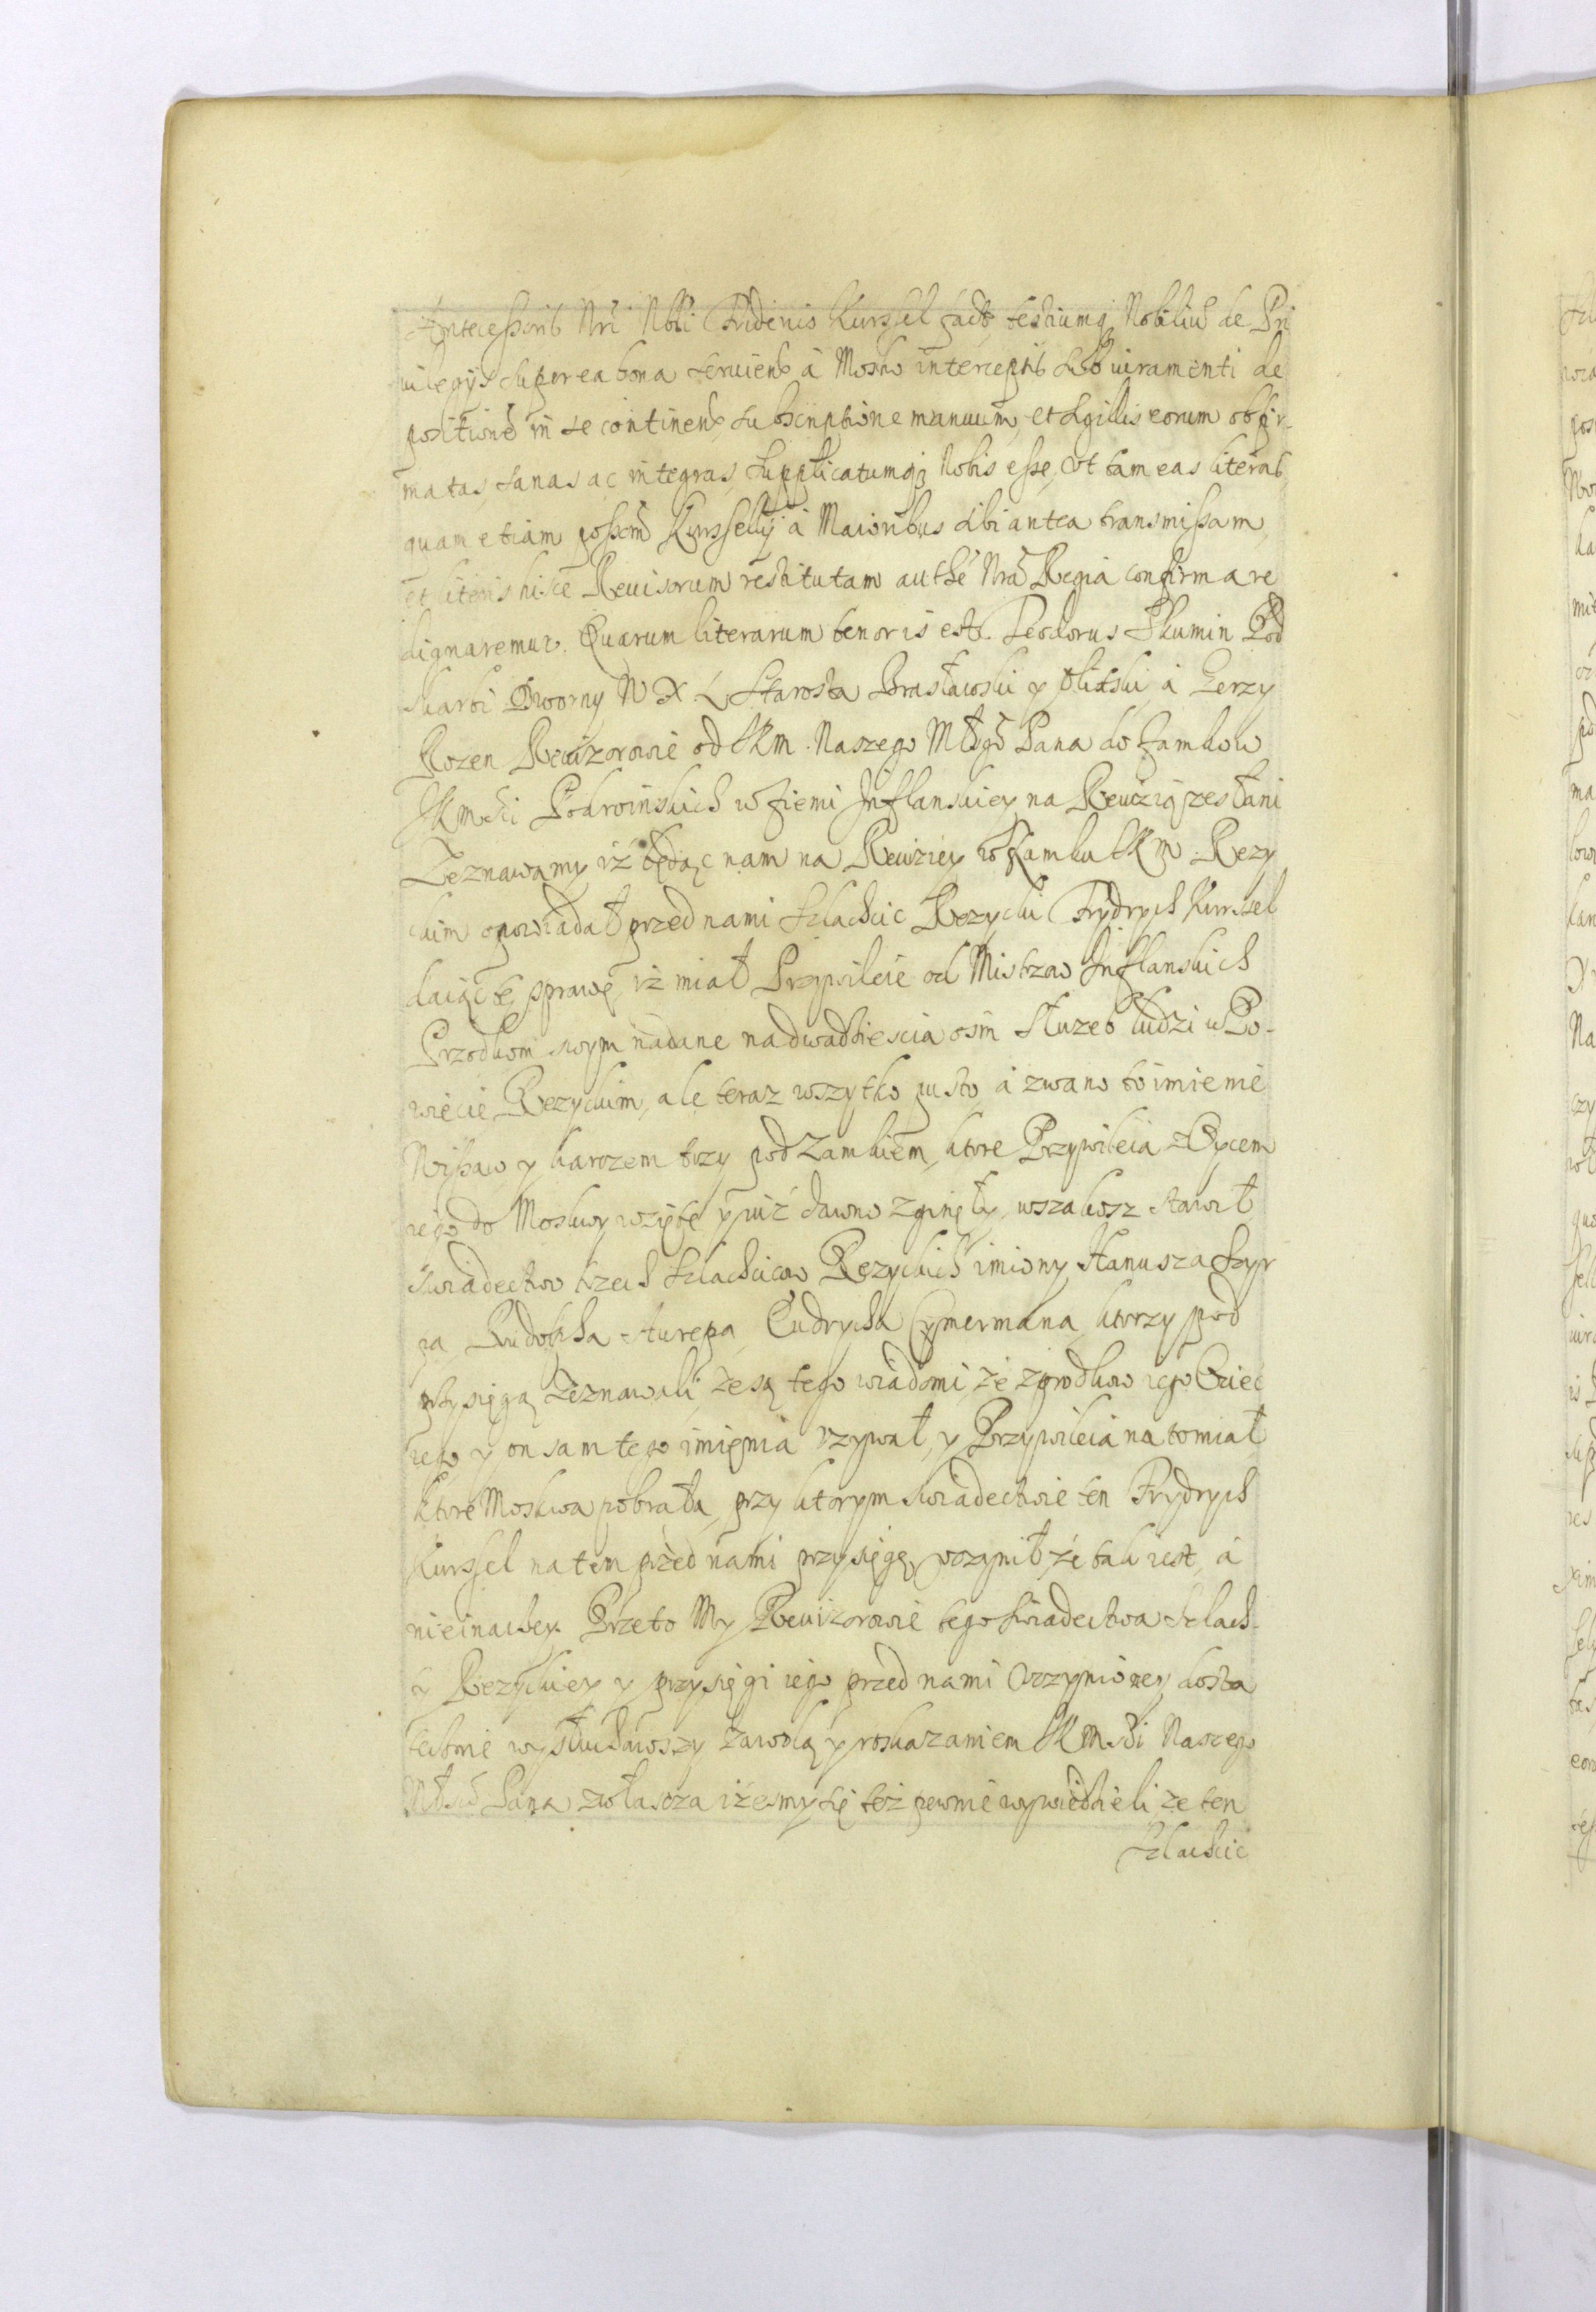 Antecessoris Nri Nbli Fridenio Kurssel facto testiumq Nobilium de Pri
uilegijs super ea bona seruient à Mosko interceptis sub iuramenti de
positione in se continen subscriptione manuum, et sigillis eorum obfir-
matas, sanas ac integras, supplicatumq3 Nobis esse, Vt tam eas literas
quam etiam possem Kursselij à Maioribus sibi antea transmissam,
et literis hisce Reuisorum restitutam authe Nra Regia confirmare
dignaremur. Quarum literarum tenor is est. Teodorus Skumin Pod
skarbi Dworny W X L Starosta Brasławski y Olitski, á Gerzy
Rozen Rewizorowie od JKM. Naszego Młgo Pana do Zamkow
JKMsci Pokroinskich w Ziemi Inflanskiey na Rewizią zesłani
Zeznawamy iż będąc nam na Rewiziey w Zamku JKM. Rezy
ckim opowiadał przed nami Szlachcic Rezycki Frydrych Kurssel
daiąc tę sprawę, iż miał Przywileie od Mistzow Inflanskich
Przodkom swym nadane na dwadziescia osm Służeb ludzi w Po-
wiecie Rezyckim, ale teraz wszytko pusto, á zwano to imienie
Wissaw y karozem trzy pod Zamkiem, ktore Przywileia z Oycem
iego do Moskwy wzięte y iuż dawno zginęły, wszakosz stawił
świadectwo trzech Szlachcicow Rezyckich imiony Hanusza Szyr
pa Rudolpha Aurepa, Eudrycha Cymermana, ktorzy pod
przysięgą Zeznawali, że są tego wiadomi, że z przodkow iego Ociec
iego y on sam tego imięnia vzywał, y Przywileia na to miał
ktore Moskwa pobrała, przy ktorym swiadectwie ten Frydrych
Kurssel na tem przed nami przysięgę vczynił że tak iest, á
nie inaczey. Przeto My Rewizorowie tego swiadectwa Szlach-
ty Rezyckiey y przysięgi iego przed nami Vczynioney dosta
tecznie wysłuchawszy Zawolą y roskazaniem JKMsci Naszego
Młgo Pana zwłascza iżesmy się też pewnie wywiedzieli, że ten
Szlachcic